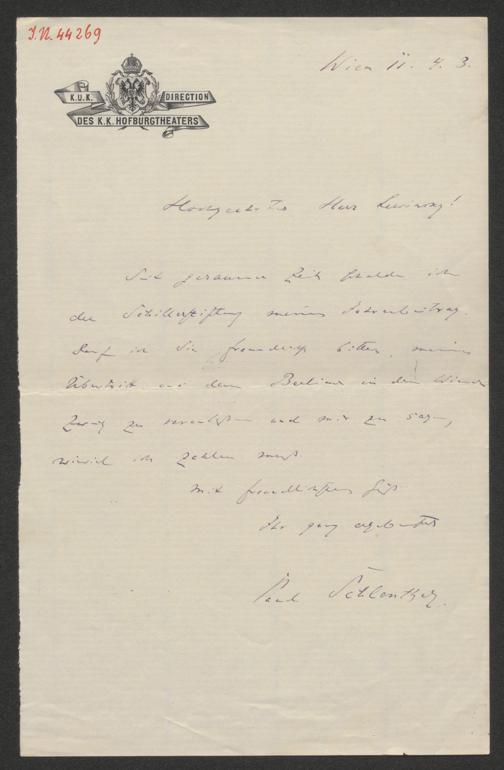 J.N. 44269
K.U.K. DIRECTION
DES K.K. HOFBURGTHEATERS
Wien 11. 4. 3.
Hochgeehrter Herr Lewinsky!
Seit geraumer Zeit schulde ich
der Schillerstiftung meinen Jahresbeitrag.
Darf ich Sie freundlichst bitten, meinen
Übertritt aus dem Berliner in den Wiener
Zweig zu veranlassen und mir zu sagen,
wieviel ich zahlen muß.
Mit freundlichstem Gruß
Ihr ganz ergebenster
Paul Schlenther.